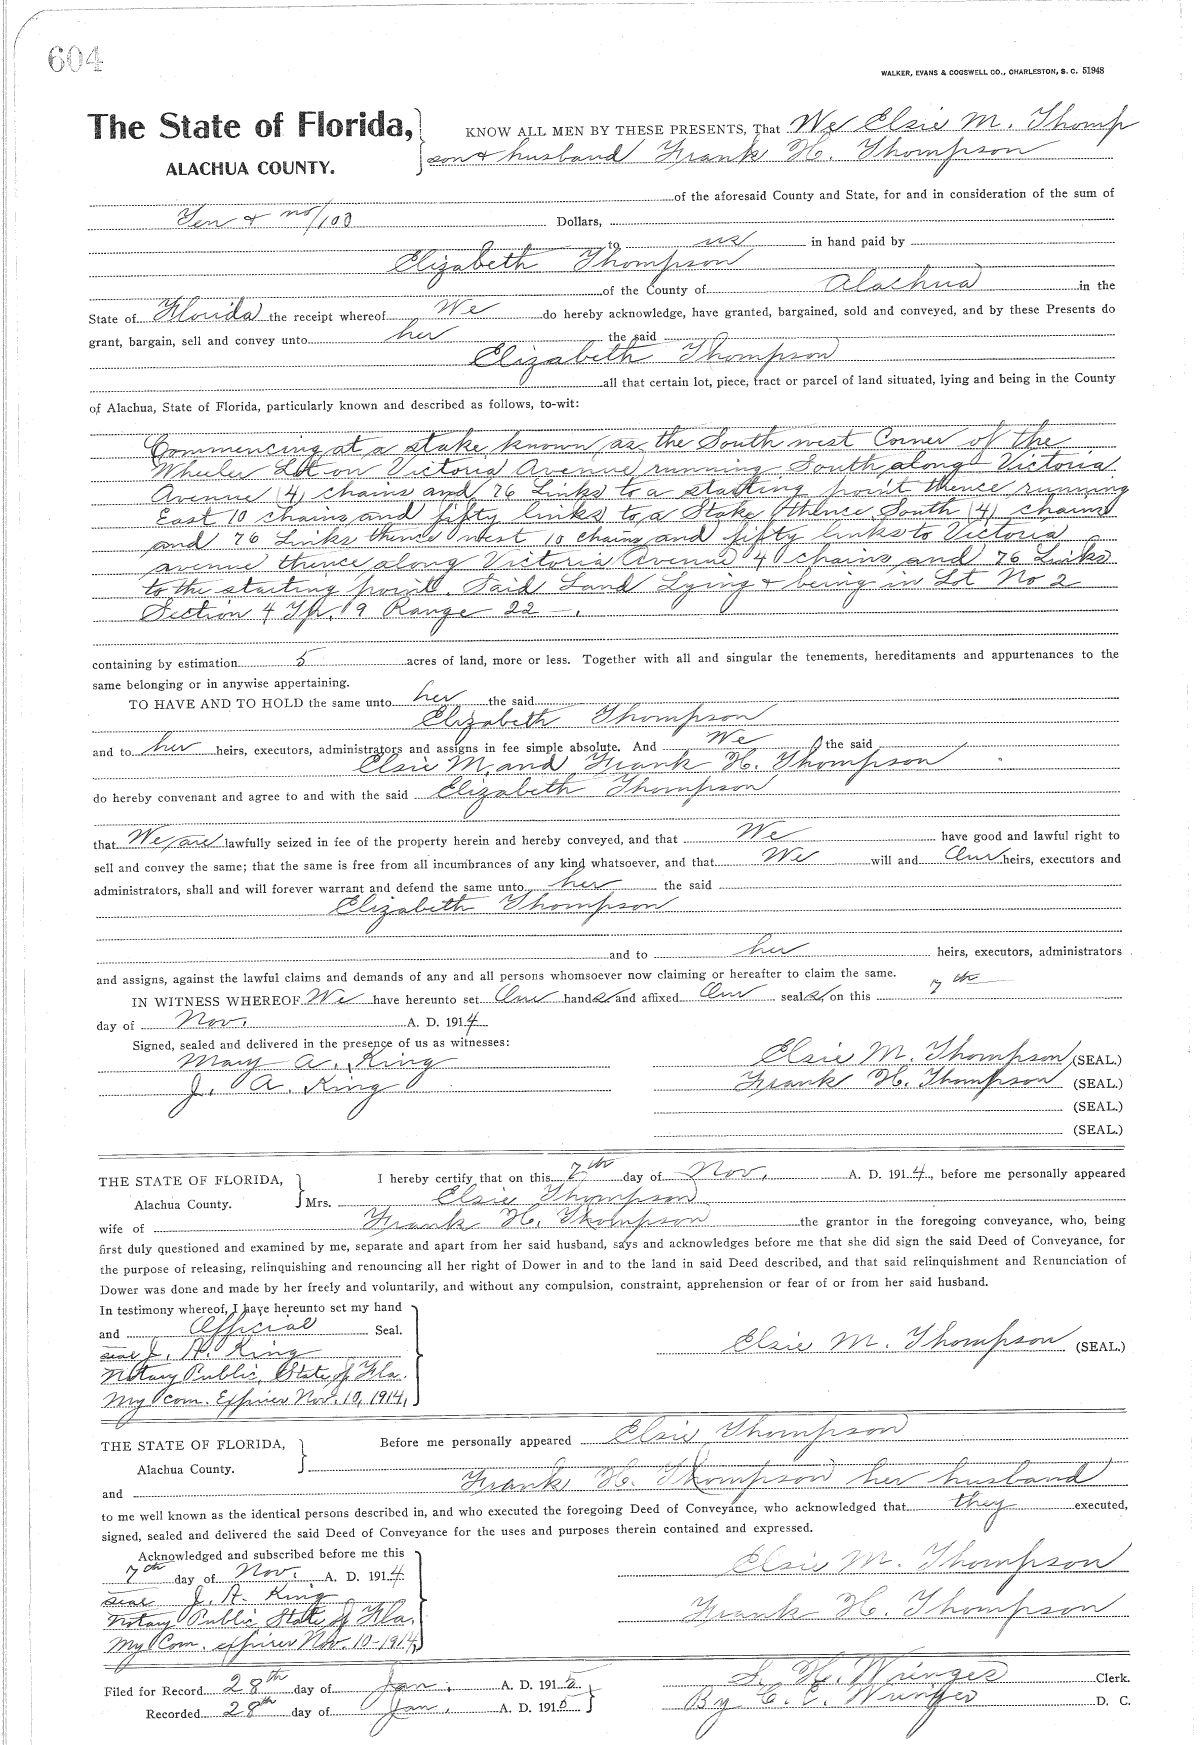 604
WALKER, EVANS & COGSWELL CO., CHARLESTON, S. C. 51948
The State of Florida,
ALACHUA COUNTY.
KNOW ALL MEN BY THESE PRESENTS, That We Elsie M. Thomp
son & husband Frank H. Thompson
of the aforesaid County and State, for and in consideration of the sum of
Ten & no/100 Dollars,
to us in hand paid by
Elizabeth Thompson
of the County of Alachua in the
State of Florida the receipt whereof We do hereby acknowledge, have granted, bargained, sold and conveyed, and by these Presents do
grant, bargain, sell and convey unto her the said
Elizabeth Thompson
all that certain lot, piece, tract or parcel of land situated, lying and being in the County
of Alachua, State of Florida, particularly known and described as follows, to-wit:
Commencing at a stake known as the South west Corner of the
Wheeler Lot on Victoria Avenue running South along Victoria
Avenue (4) chains and 76 Links to a starting point thence running
East 10 chains and fifty links to a Stake thence South (4) chains
and 76 Links thence west 10 chains and fifty links to Victoria
avenue thence along Victoria Avenue 4 chains and 76 Links
to the starting point. Said Land Lying & being in Lot No 2
Section 4 Tp. 9 Range 22 —.
containing by estimation 5 acres of land, more or less. Together with all and singular the tenements, hereditaments and appurtenances to the
same belonging or in anywise appertaining.
TO HAVE AND TO HOLD the same unto her the said
Elizabeth Thompson
and to her heirs, executors, administrators and assigns in fee simple absolute. And We the said
Elsie M. and Frank H. Thompson
do hereby convenant and agree to and with the said Elizabeth Thompson
that We are lawfully seized in fee of the property herein and hereby conveyed, and that We have good and lawful right to
sell and convey the same; that the same is free from all incumbrances of any kind whatsoever, and that We will and Our heirs, executors and
administrators, shall and will forever warrant and defend the same unto her the said
Elizabeth Thompson
and to her heirs, executors, administrators
and assigns, against the lawful claims and demands of any and all persons whomsoever now claiming or hereafter to claim the same.
IN WITNESS WHEREOF We have hereunto set Our hands and affixed Our seals on this 7th
day of Nov. A. D. 1914
Signed, sealed and delivered in the presence of us as witnesses:
Mary A. King
J. A. King
Elsie M. Thompson (SEAL.)
Frank H. Thompson (SEAL.)
(SEAL.)
(SEAL.)
THE STATE OF FLORIDA,
Alachua County.
I hereby certify that on this 7th day of Nov. A. D. 1914, before me personally appeared
Mrs. Elsie Thompson
wife of Frank H. Thompson the grantor in the foregoing conveyance, who, being
first duly questioned and examined by me, separate and apart from her said husband, says and acknowledges before me that she did sign the said Deed of Conveyance, for
the purpose of releasing, relinquishing and renouncing all her right of Dower in and to the land in said Deed described, and that said relinquishment and Renunciation of
Dower was done and made by her freely and voluntarily, and without any compulsion, constraint, apprehension or fear of or from her said husband.
In testimony whereof, I have hereunto set my hand
and Official Seal.
seal J. A. King
Notary Public, State of Fla.
My com. Expires Nov. 10, 1914,
Elsie M. Thompson (SEAL.)
THE STATE OF FLORIDA,
Alachua County.
Before me personally appeared Elsie Thompson
and Frank H. Thompson her husband
to me well known as the identical persons described in, and who executed the foregoing Deed of Conveyance, who acknowledged that they executed,
signed, sealed and delivered the said Deed of Conveyance for the uses and purposes therein contained and expressed.
Acknowledged and subscribed before me this
7th day of Nov. A. D. 1914
seal J. A. King
Notary Public State of Fla.
My Com. expires Nov. 10-1914,
Elsie M. Thompson
Frank H. Thompson
Filed for Record 28th day of Jan. A. D. 1915
Recorded 28th day of Jan. A. D. 1915
S. H. Wienges Clerk.
By C. E. Wienges D. C.